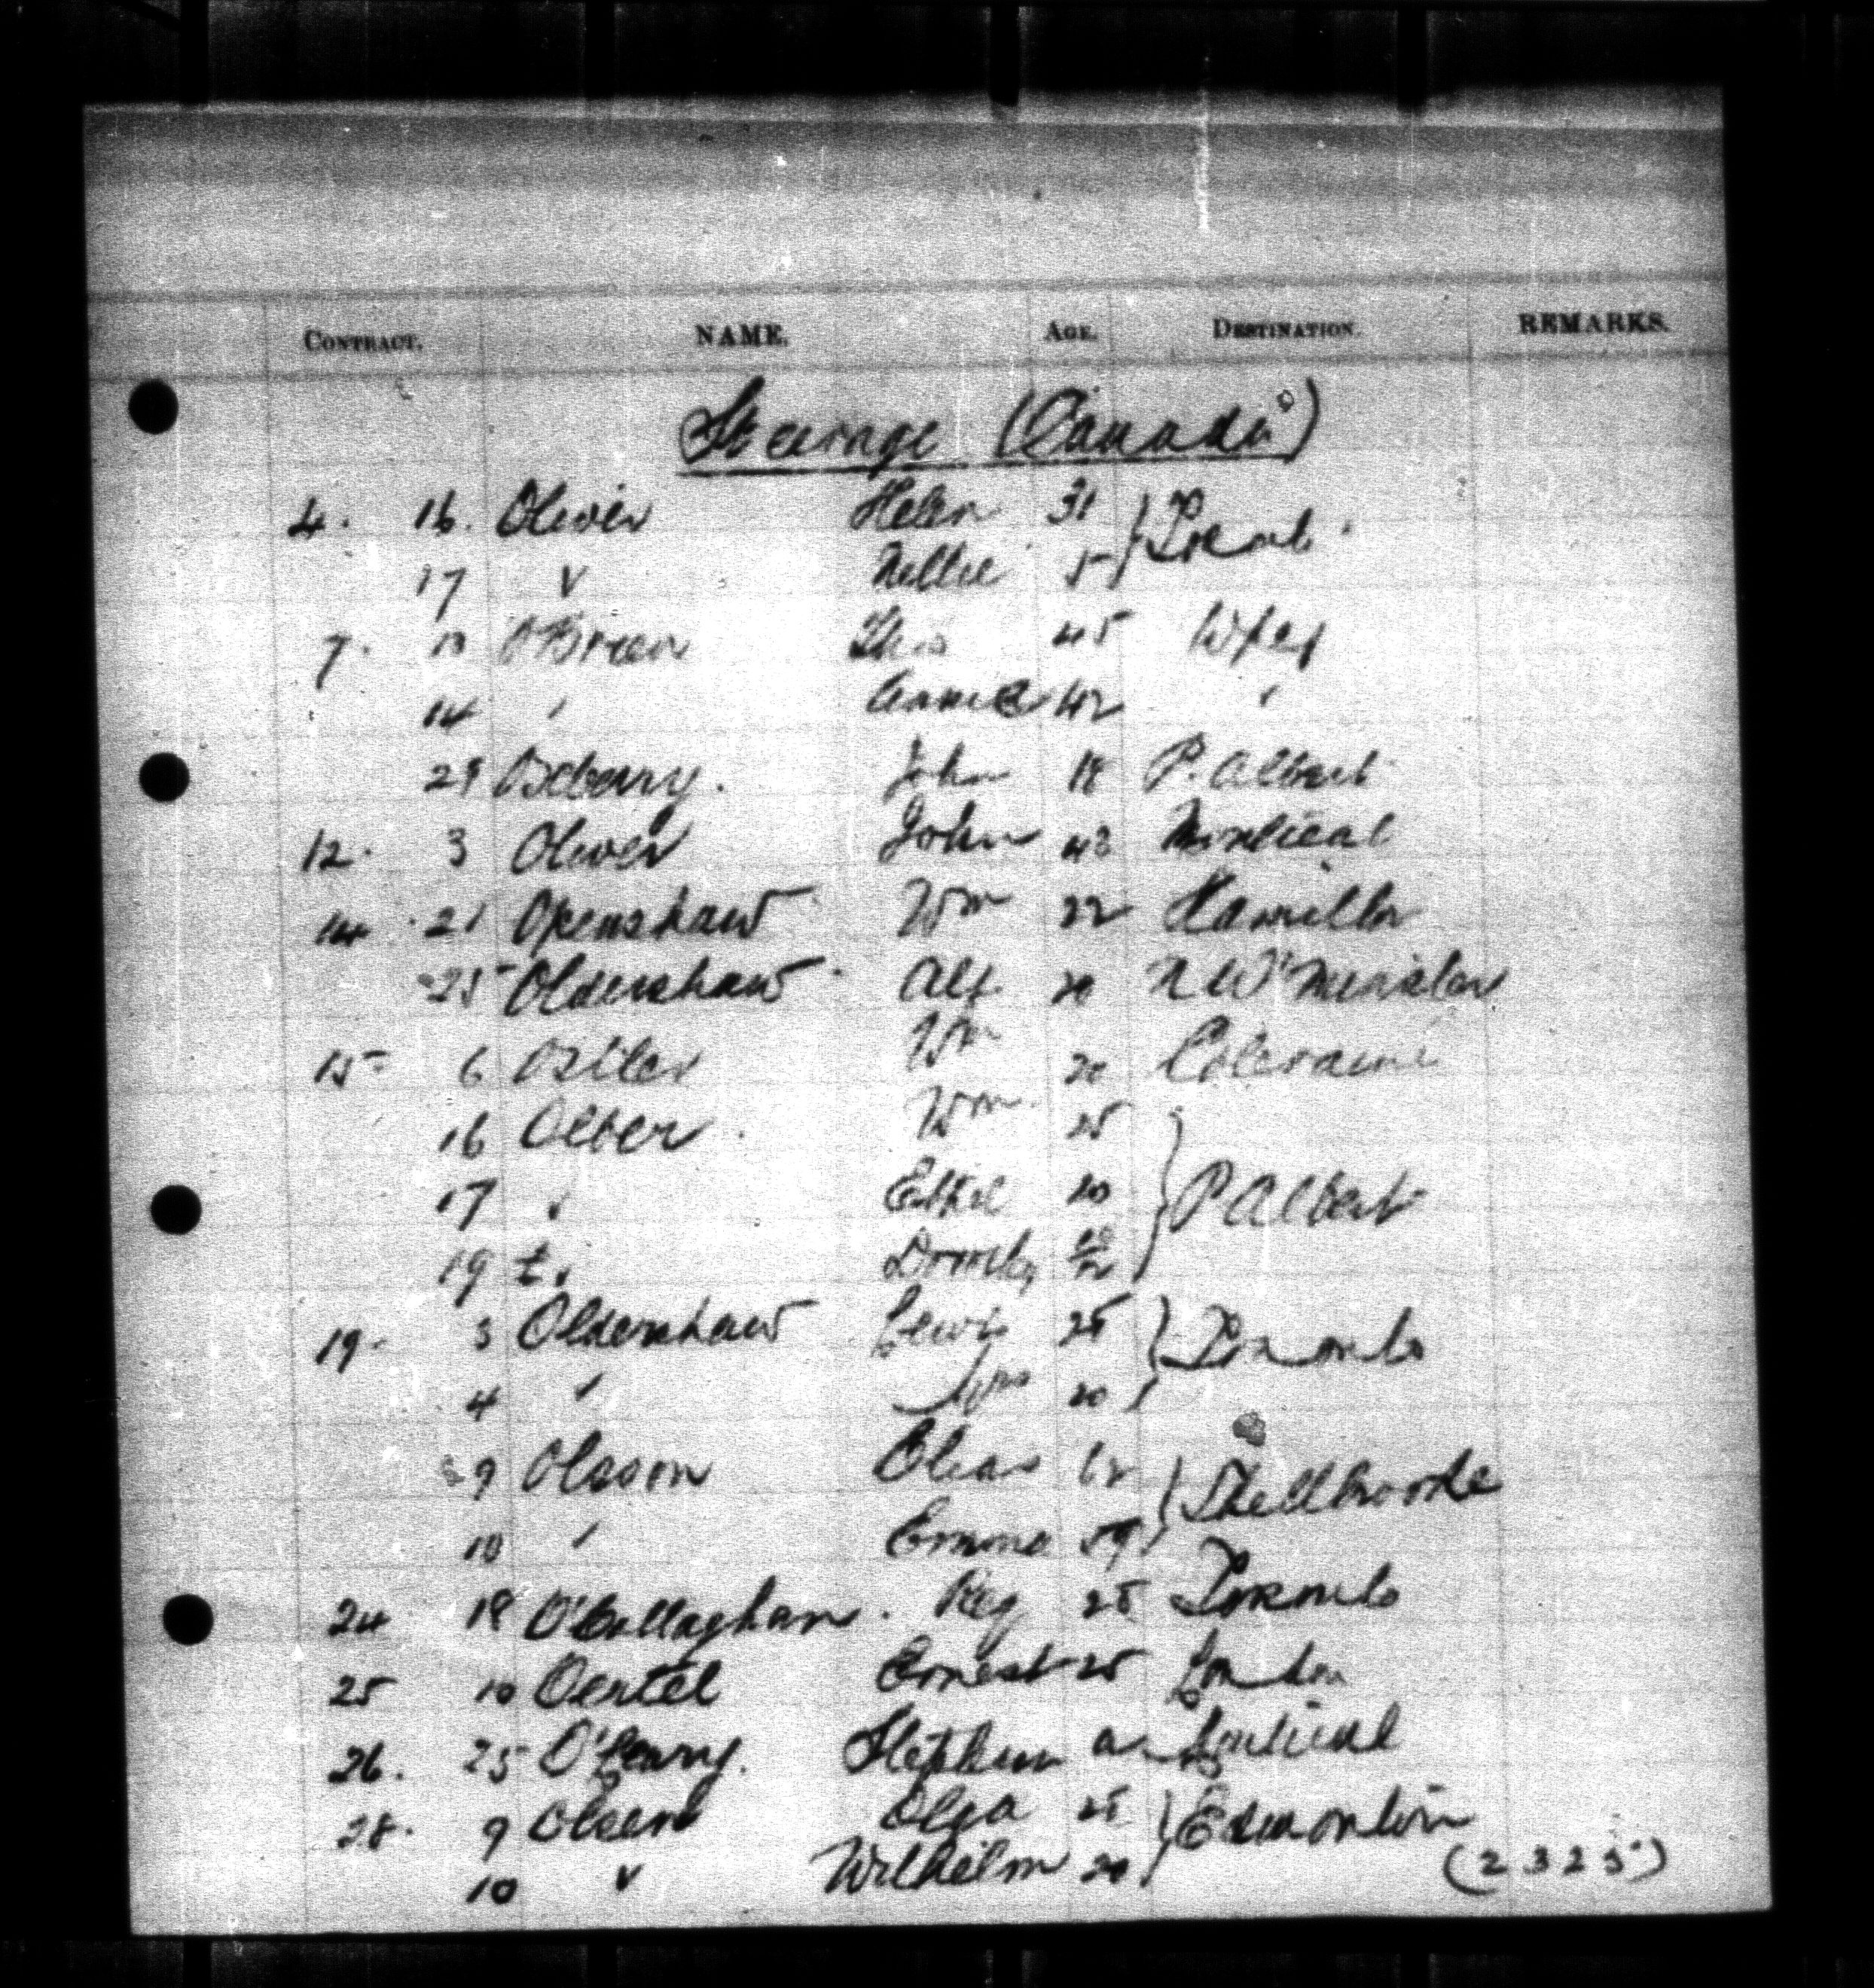 CONTRACT. NAME. AGE. DESTINATION. REMARKS.
Steerage (Canada)
4. 16. Oliver Helen 31
17 " Nellie 5
7. O'Brien Thos 45 Wpeg
14 " Annie 42 "
Oxberry. John 18 P. Albert
12. 3 Oliver John 43 Montreal
14 21 Openshaw Wm 22 Hamilton
25 Oldershaw Alf. 20 N W'Minster
15 6 Ostler Wm 20 Coleraine
16 Olber Wm 25
17 " Ethel 20 P Albert
19 " Dorothy
19. 3 Oldershaw Lewis 25 Toronto
4 " Mrs 20
9 Olsson Elias 62 Shellbrooke
10 " Emma 59
24 18 O'Callaghan. Reg 25 Toronto
25 10 Oertel Ernest 25 London
26. 25 O'Leary. Stephen a Montreal
28. 9 Olsen Olga 25 Edmonton
10 " Wilhelm 20 (2325)